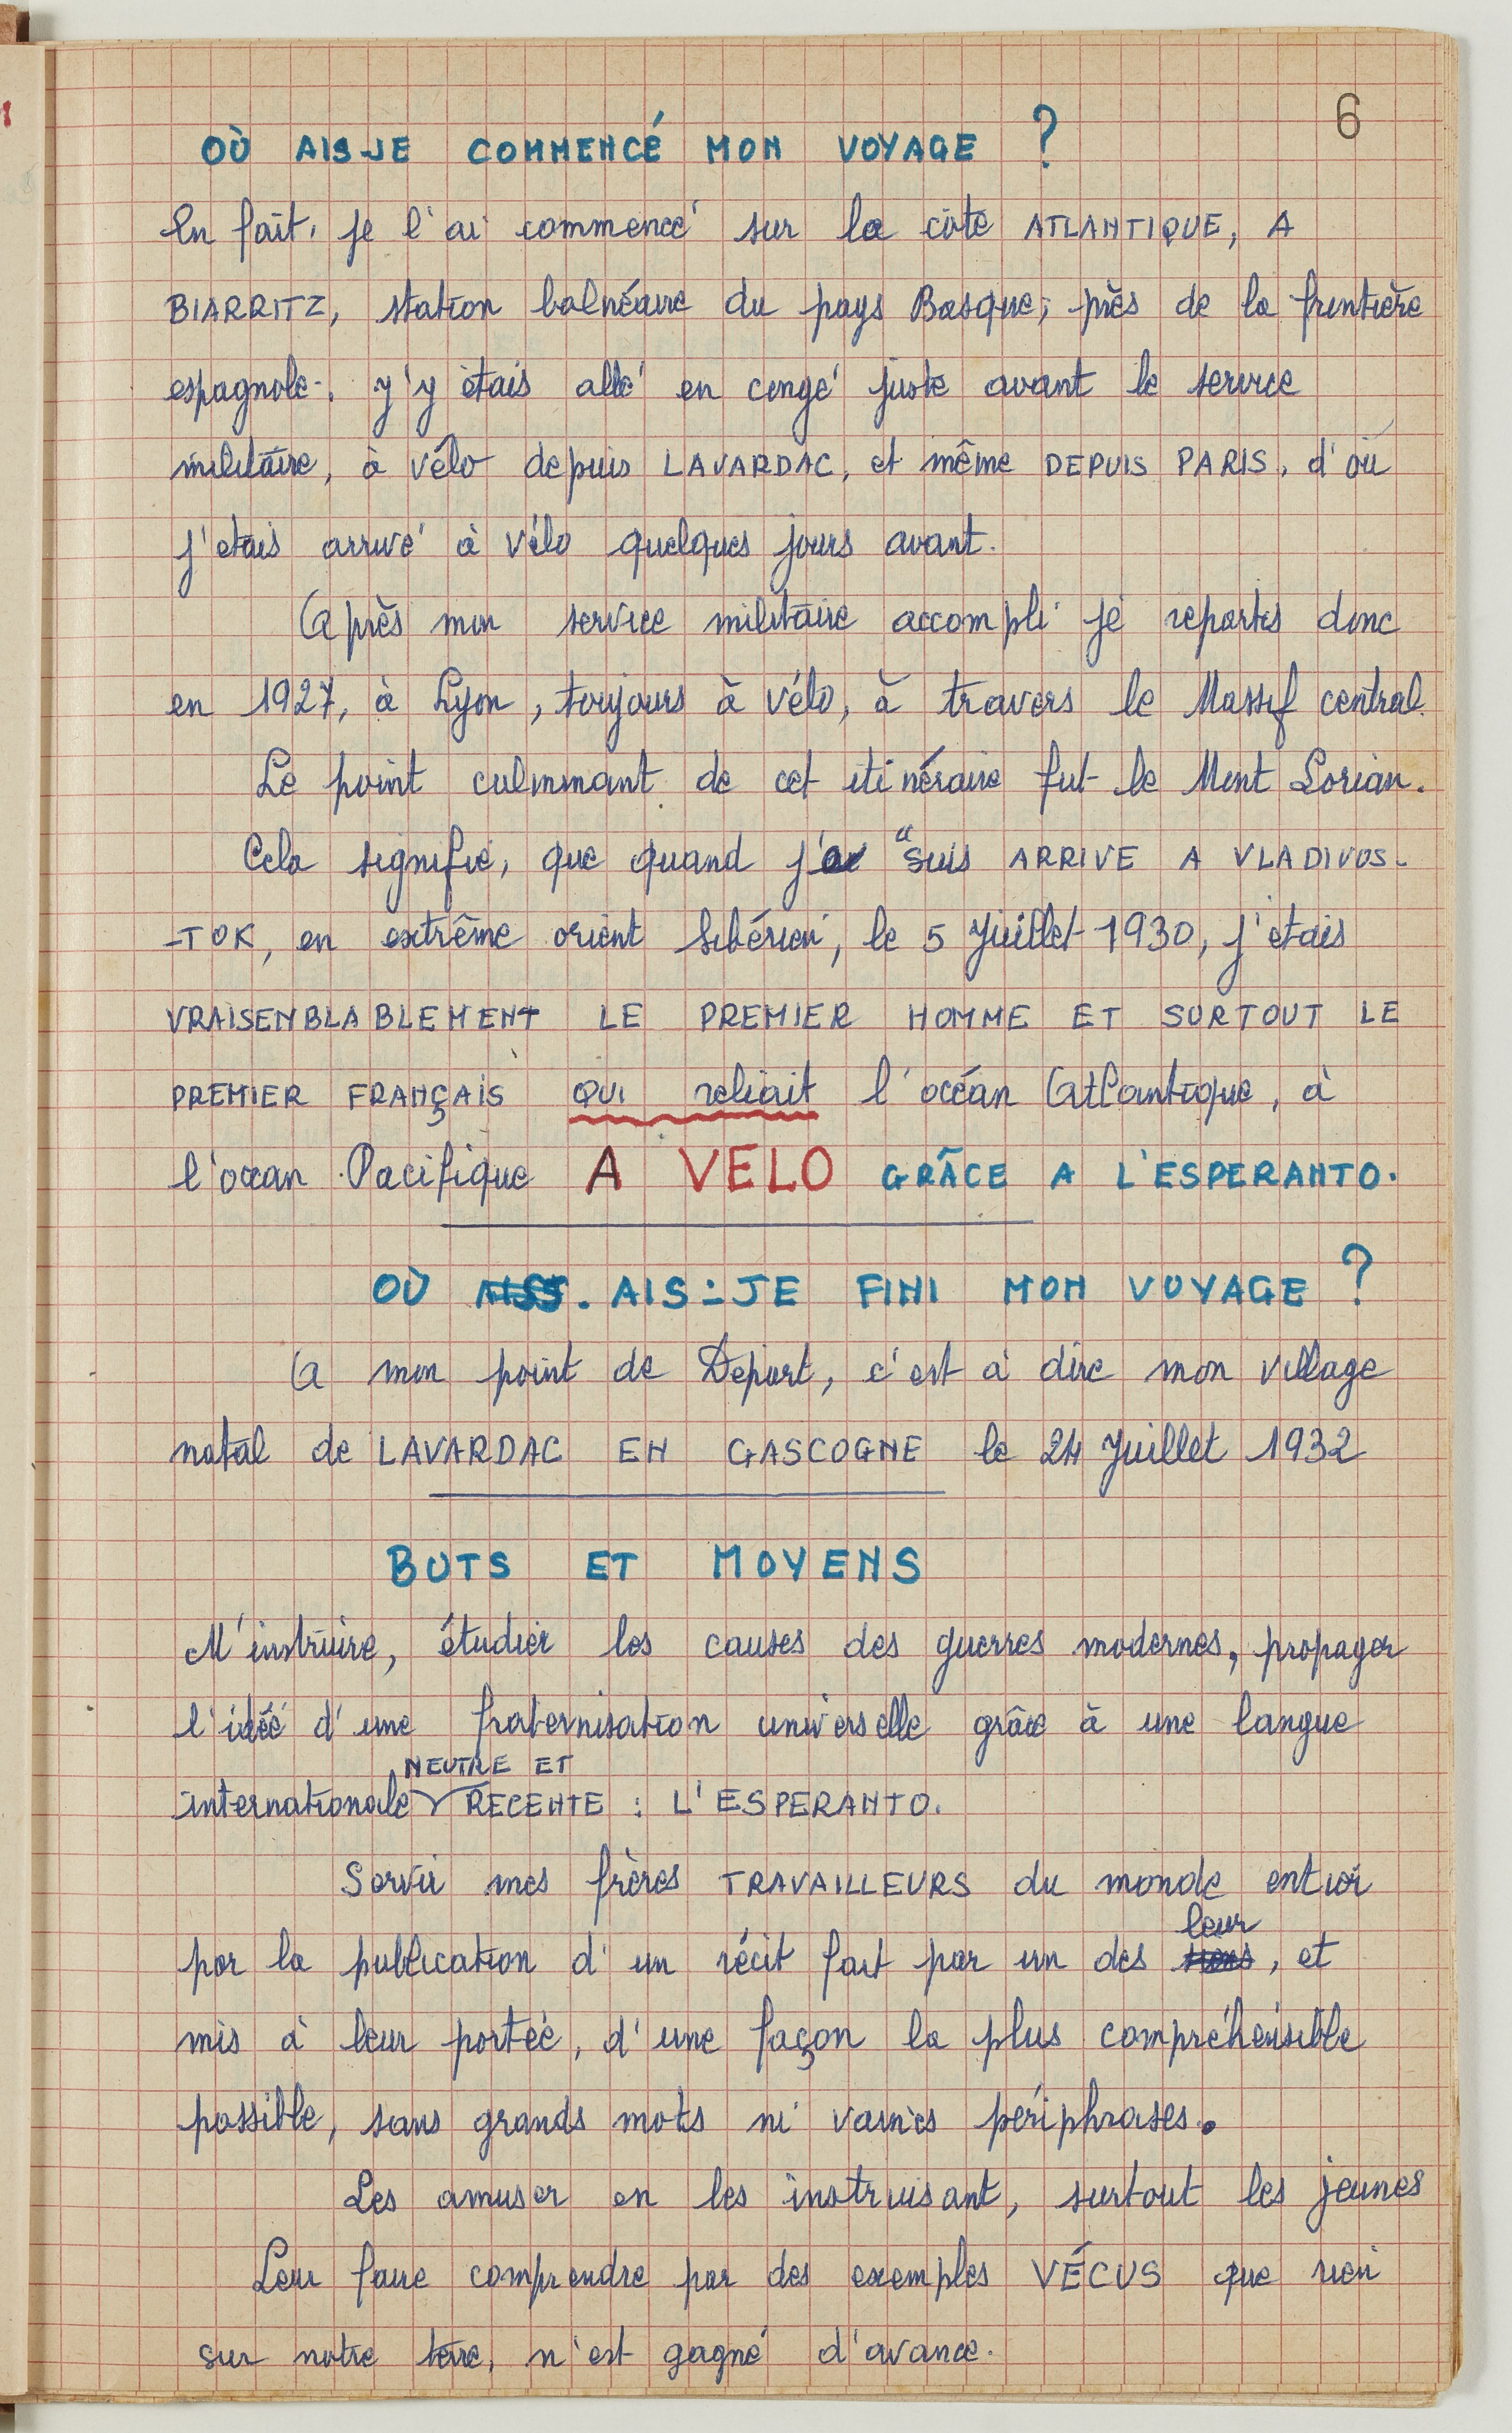 6
OÙ AIS-JE COMMENCÉ MON VOYAGE ?
En fait, je l'ai commencé sur la côte ATLANTIQUE, A
BIARRITZ, station balnéaire du pays Basque, près de la frontière
espagnole. J'y étais allé en congé juste avant le service
militaire, à vélo depuis LAVARDAC, et même DEPUIS PARIS, d'où
j'étais arrivé à vélo quelques jours avant.
Après mon service militaire accompli je repartis donc
en 1927, à Lyon, toujours à vélo, à travers le Massif central.
Le point culminant de cet itinéraire fut le Mont Lorian.
Cela signifie, que quand j' "suis ARRIVE A VLADIVOS-
-TOK, en extrême orient Sibérien, le 5 Juillet 1930, j'étais
VRAISENBLABLEMENT LE PREMIER HOMME ET SURTOUT LE
PREMIER FRANÇAIS QUI reliait l'océan Atlantique, à
l'océan Pacifique A VELO GRÂCE A L'ESPERANTO.
OÙ AIS-JE FINI MON VOYAGE ?
A mon point de Départ, c'est à dire mon village
natal de LAVARDAC EN GASCOGNE le 24 Juillet 1932
BUTS ET MOYENS
M'instruire, étudier les causes des guerres modernes, propager
l'idée d'une fraternisation universelle grâce à une langue
NEUTRE ET
internationale RECENTE : L'ESPERANTO.
Servir mes frères TRAVAILLEURS du monde entier
leur
par la publication d'un récit fait par un des , et
mis à leur portée, d'une façon la plus compréhensible
possible, sans grands mots ni vaines périphrases.
Les amuser en les instruisant, surtout les jeunes
Leur faire comprendre par des exemples VÉCUS que rien
sur notre terre, n'est gagné d'avance.